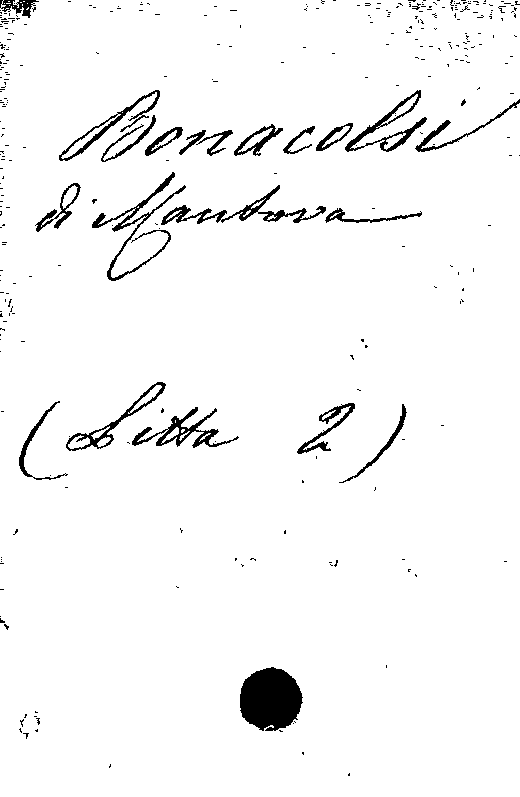 Bonacolsi
di Mantova
(Litta 2)